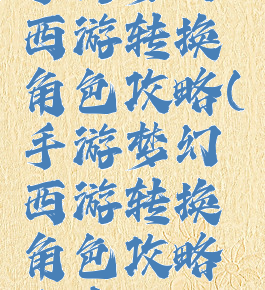 西游转换
角色攻略(
手游梦幻
西游转换
角色攻略